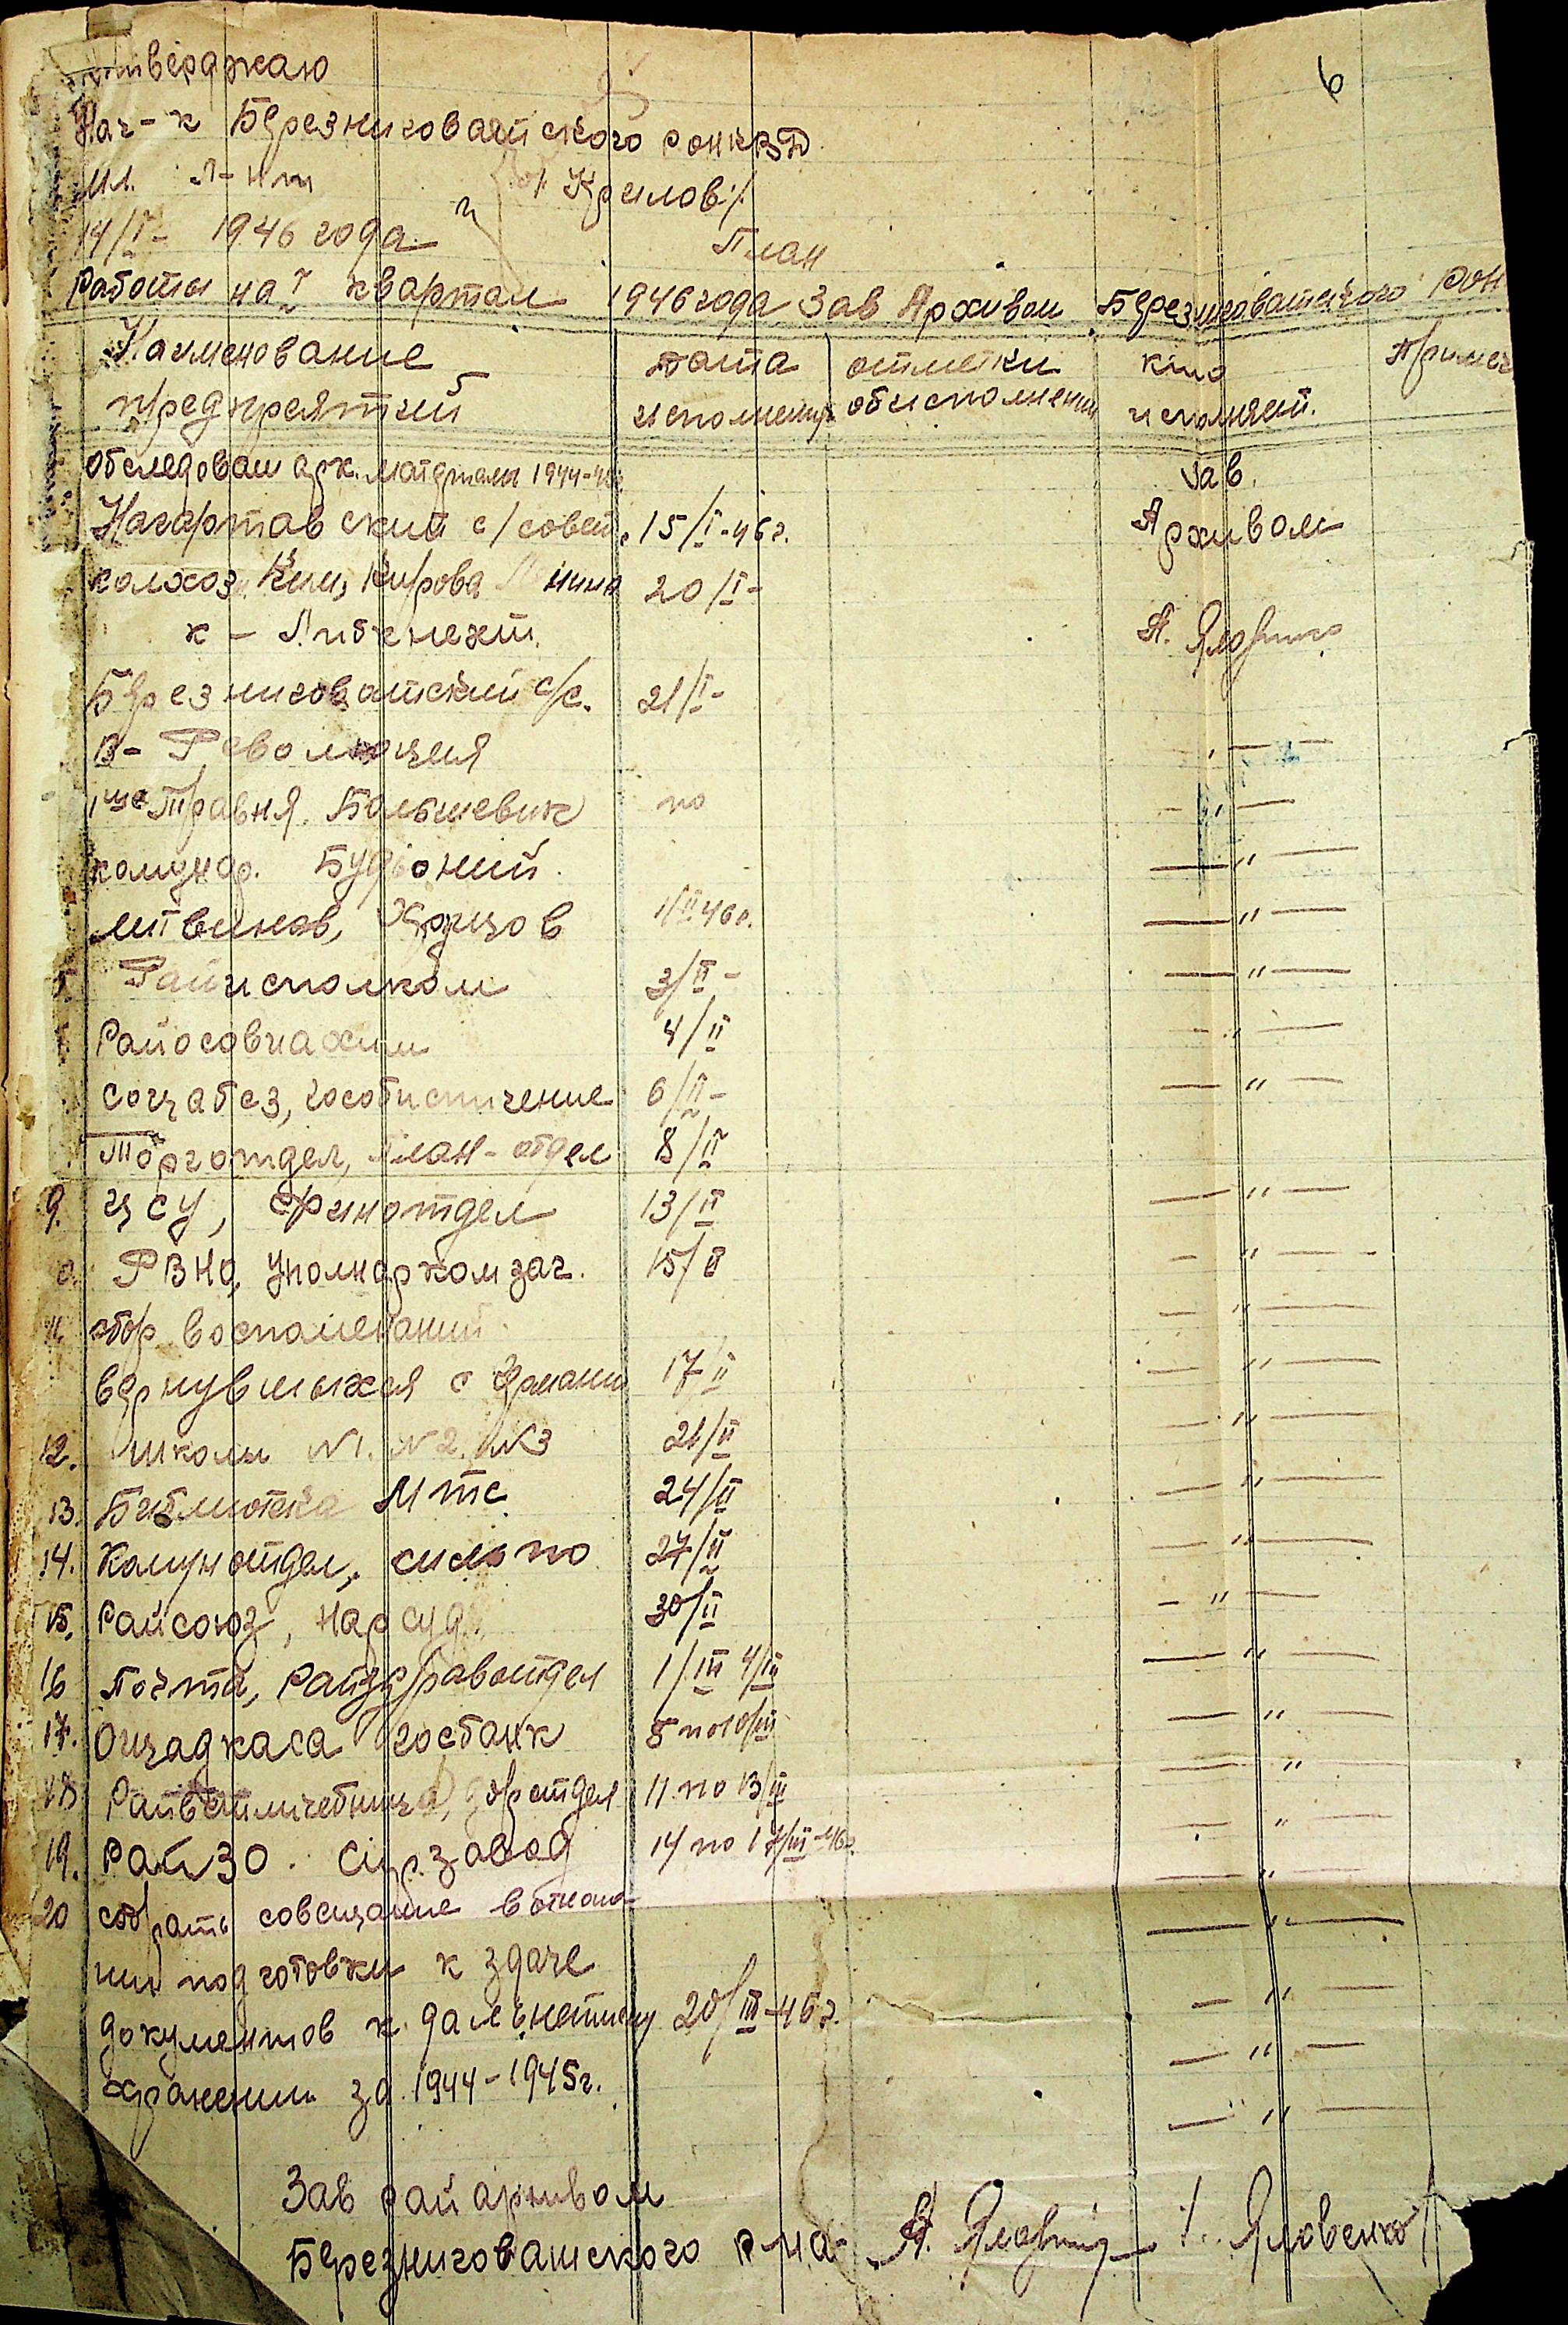 6
тверджаю
Нач-к Березниговатского РОНКВД
мл. л-нт /Крилов/
14/I- 1946 года
План
Работы на I квартал 1946 года Зав Архивом Березниговатского РОН
Наименование дата отметки кто Примеч
предпреятий исполнения об исполнении исполняет.
Обследоваш арх. матдриалы 1944-45 Зав.
Нагартавский с/совет. 15/I-46г. Архивом
колхоз. Ким, Кирова 20/I-
к - Либкнехт. Я. Яловенко
Березниговатский с/с. 21/I-
В- Революция - " -
1ще Травня. Большевик по - " -
комунар. Будьоний. - " -
литвинов, 1/II 46г. - " -
Райисполком 3/II- - " -
Райосовиахим 4/II - " -
соцабез, гособиспичение 6/II- - " -
Торготдел, План-отдел 8/II
9. ЦСУ, Финотдел 13/II - " -
РВНО, Уполнаркомзаг. 15/II - " -
11 сбор воспоменаний - " -
вернувшыхся с Ермании 17/II - " -
12. школы N1. N2. N3 21/II - " -
13. Библиотека МТС 24/II - " -
14. Комунотдел, сильпо 27/II - " -
15. Райсоюз, Нарсуд. 30/II - " -
16 Почта, Райздравотдел 1/III 4/III - " -
17. Ощадкаса госбанк 5 по 10/III - " -
18 Райветличебница, доротдел 11 по 13/III "
19. РайЗО. Сирзавод 14 по 17/III-46г. - " -
20 собрать совещание вотноше- - " -
нии подготовки к здаче - " -
документов к дальнейшему 20/III-46г. - " -
хранении за 1944-1945г. - " -
Зав райархивом
Березниговатского р-на Я. Яловенко /Яловенко/